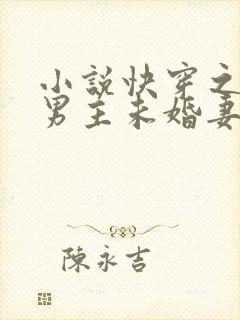 小說快穿之
男主未婚妻
陳永吉